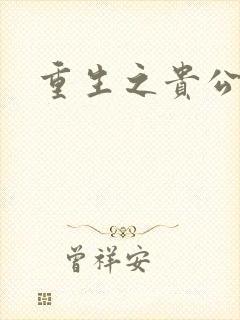 重生之貴公
曾祥安